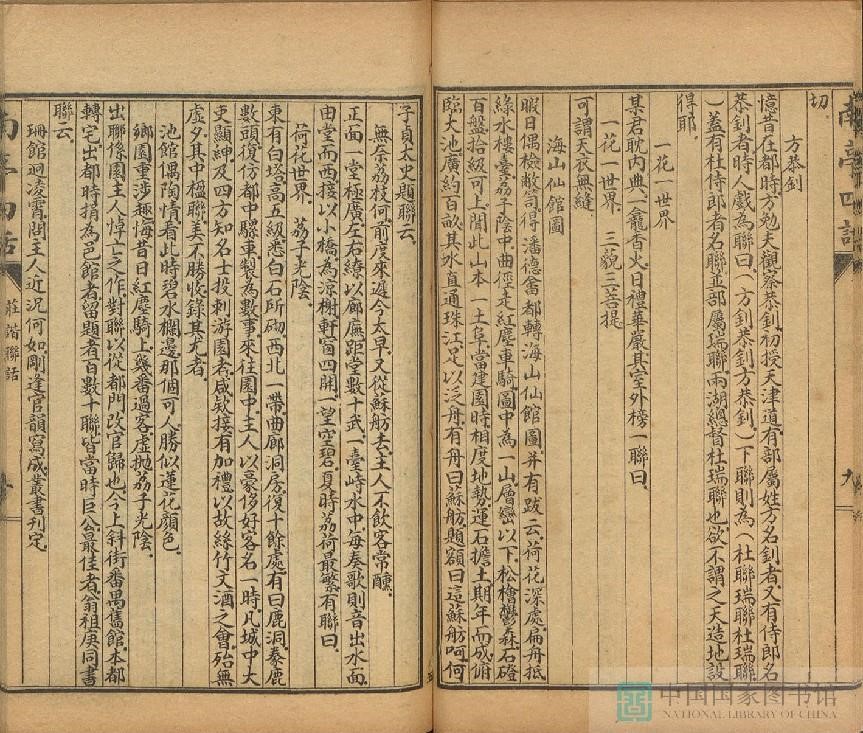 南亭四話
切.
方恭釗
憶昔在都時方勉夫觀察恭釗初授天津道有部屬姓方名釗者又有侍郎名
恭釗者時人戲為聯曰.(方釗恭釗方恭釗.)下聯則為(杜聯瑞聯杜瑞聯.
)蓋有杜侍郎者名聯.並部屬瑞聯兩湖總督杜瑞聯也欲不謂之天造地設.
得耶.
一花一世界
某君耽內典一龕香火日禮華嚴其室外榜一聯曰.
一花一世界 三藐三菩提
可謂天衣無縫.
海山仙館圖
暇日偶檢敝笥得潘德畬都轉海山仙館圖并有跋云.荷花深處.扁舟抵
綠水樓臺.荔子陰中.曲徑走紅塵車騎.圖中為一山.層巒以下.松檜鬱森.石磴
百盤拾級可上.聞此山本一土阜.當建園時相度地勢.運石擔土.期年而成.俯
臨大池.廣約百畝.其水直通珠江.足以泛舟.有舟曰蘇舫.題額曰這蘇舫呵.何
九
子貞太史題聯云.
無奈荔枝何前度來遲今太早.又從蘇舫去.主人不飲客常醺.
正面一堂.極廣.左右繚以廊廡.距堂數十武.一臺峙水中.每奏歌則音出水面.
由堂而西.接以小橋.為涼榭.軒窗四開.一望空碧.夏時荔荷最繁.有聯曰.
荷花世界.荔子光陰.
東有白塔.高五級.悉白石所砌.西北一帶.曲廊洞房.復十餘處.有曰鹿洞.豢鹿
數頭.復仿都中騾車製為數事.來往園中.主人以豪侈好客名一時.凡城中大
吏顯紳.及四方知名士投刺游園者.咸欵接有加禮.以故絲竹文酒之會.殆無
虛夕.其中楹聯美不勝收.錄其尤者.
池館偶陶情.看此時碧水欄邊.那個可人.勝似蓮花顏色.
鄉園重涉趣.悔昔日紅塵騎上.幾番過客.虛拋荔子光陰.
出聯係園主人悼亡之作.對聯以從都門改官歸也.今上斜街番禺舊館.本都
轉宅.出都時捐為邑館者.留題者百數十聯.皆當時巨公.最佳者.翁祖庚同書
聯云.
珊館迥凌霄.問主人近況何如.剛逢官韻寫成.叢書刊定.
南亭四話
莊諧聯話
中国国家图书馆
NATIONAL LIBRARY OF CHINA